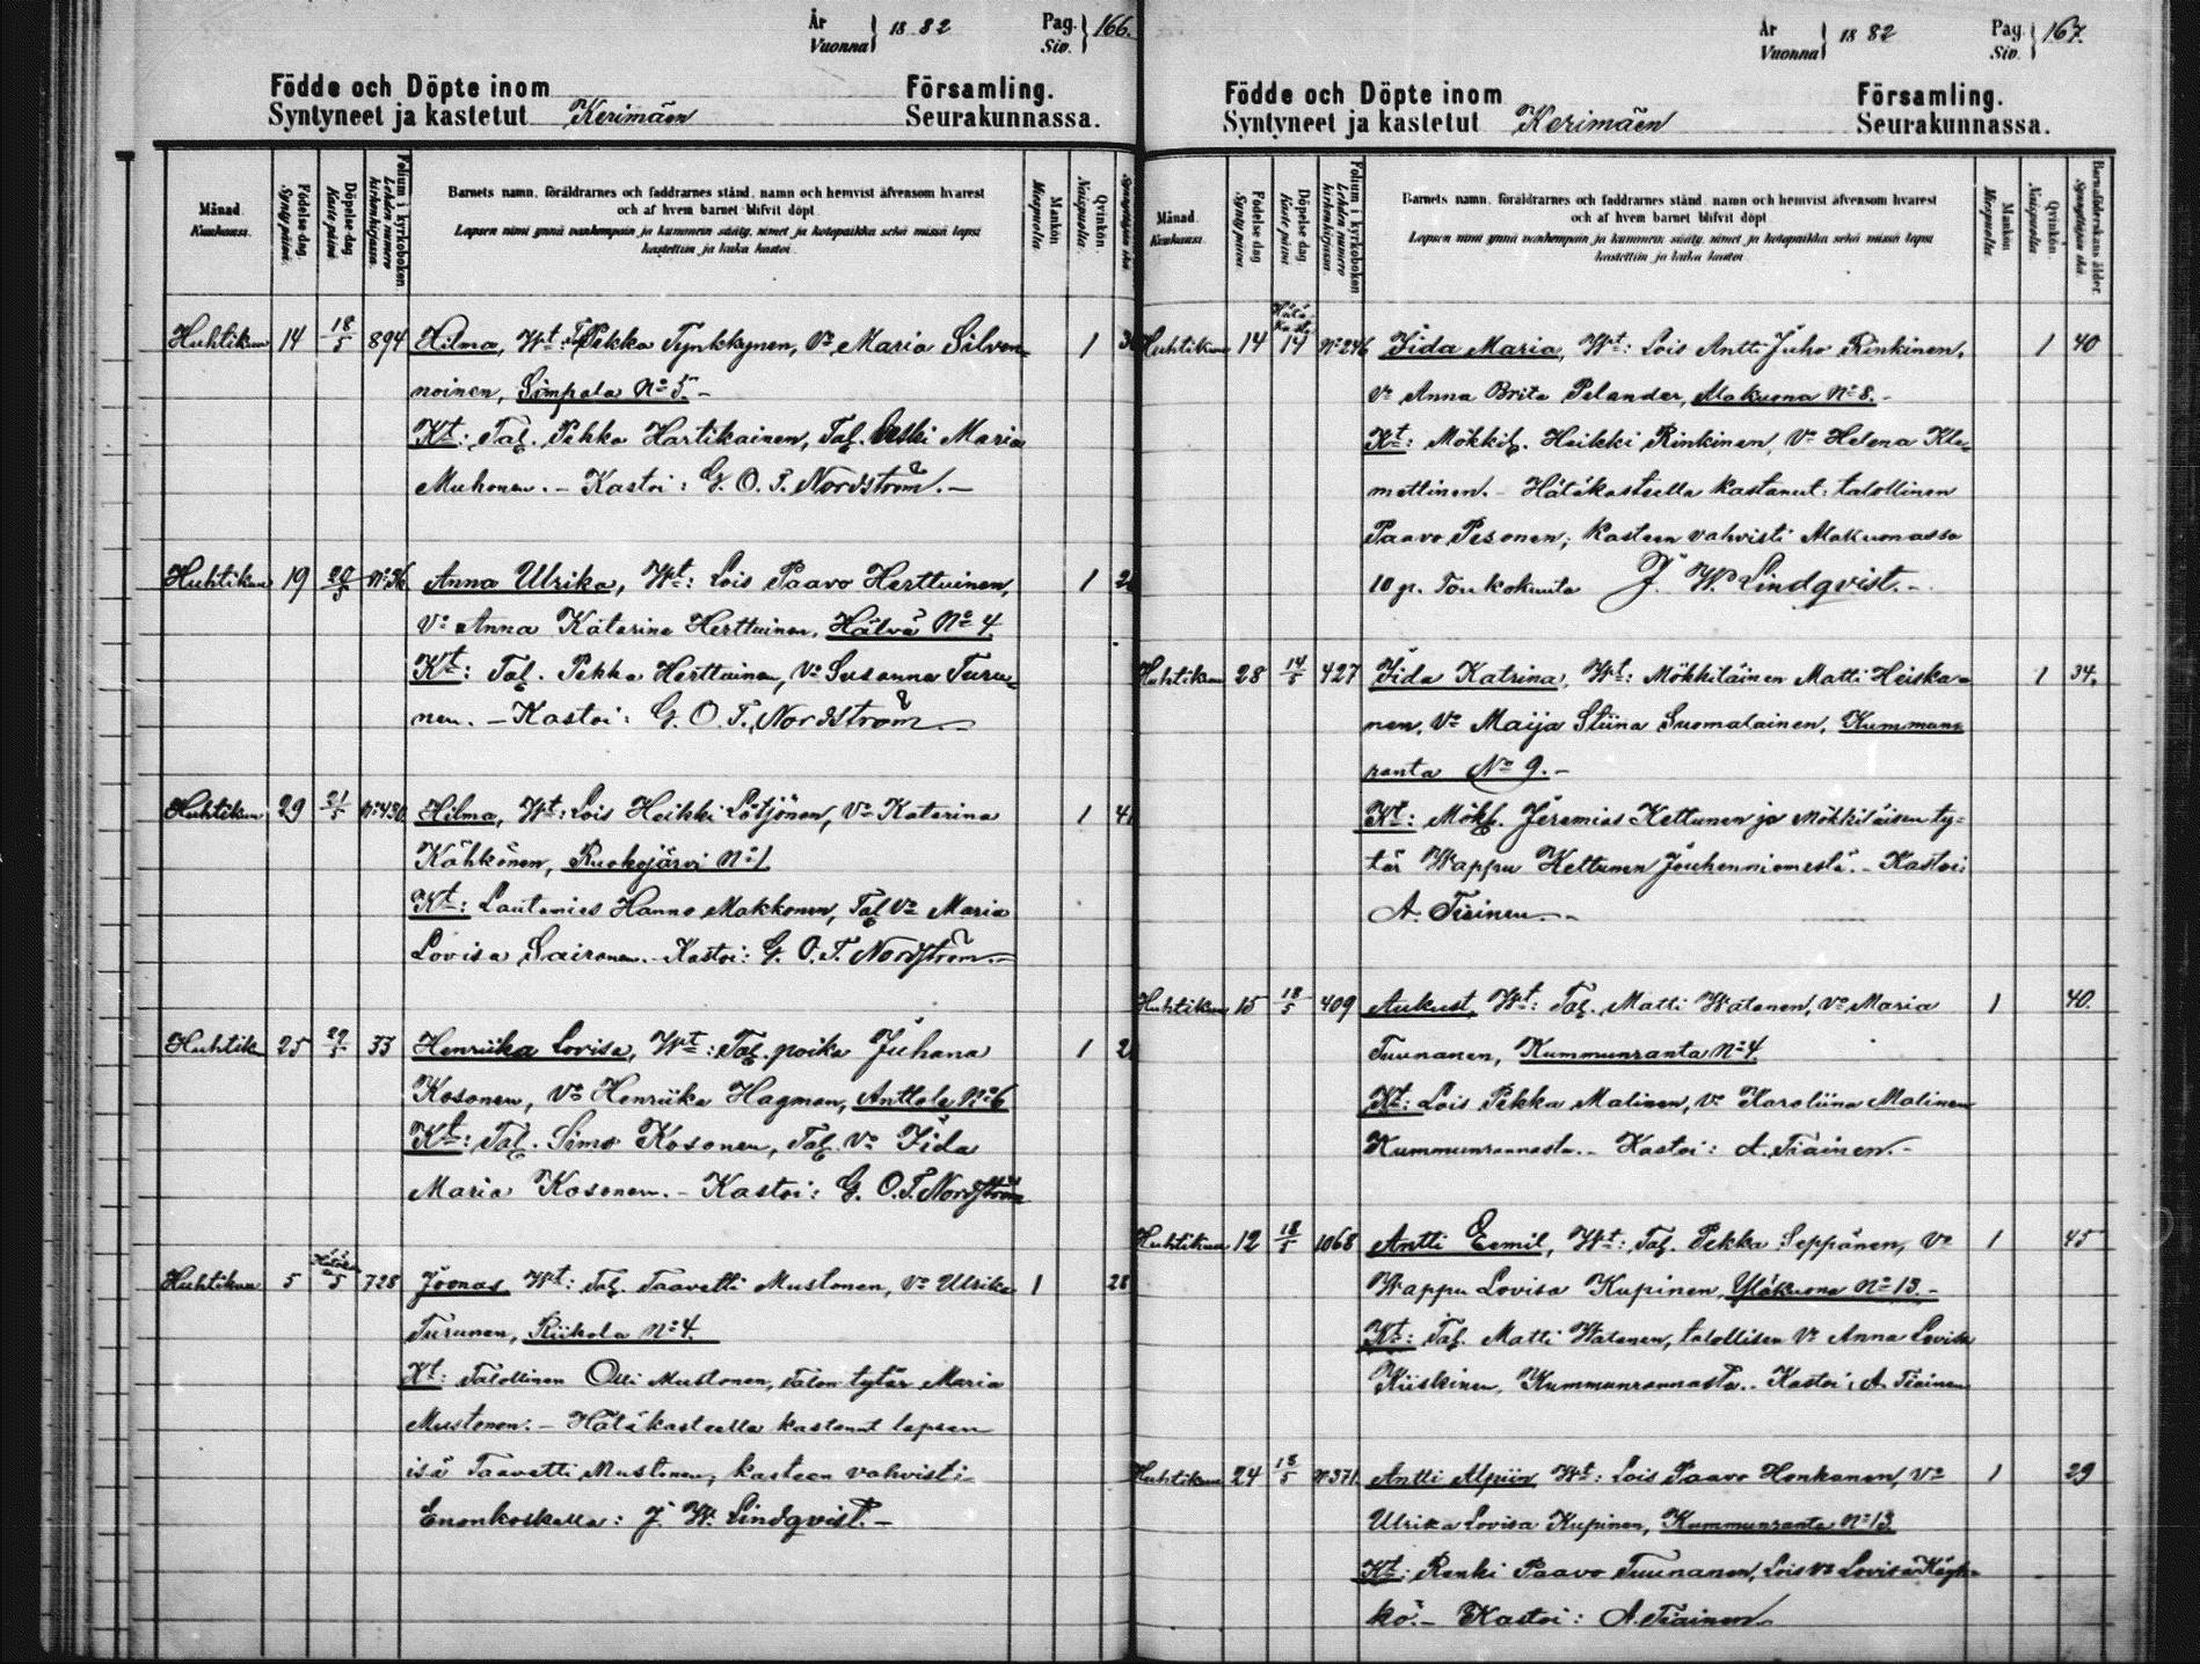 År
Vuonna } 1882 Pag. Siv. } 166.
Födde och Döpte inom Församling.
Syntyneet ja kastetut Kerimäen Seurakunnassa.
Månad. Kuukausi.
Födelse dag Synty päivä.
Döpelse dag Kaste päivä
Folium i kyrkoboken Lehden numero kirkonkirjassa.
Barnets namn, föräldrarnes och faddrarnes stånd, namn och hemvist äfvensom hvarest
och af hvem barnet blifvit döpt.
Lapsen nimi ynnä vanhempain ja kummein sääty, nimet ja kotopaikka sekä missä lapsi
kastettiin ja kuka kastoi.
Mankön Miespuolia.
Qvinkön. Naispuolia.
Huhtikuu 14 18/5 894 Hilma, Wt: Tal. Pekka Tynkkynen, Vo Maria Silven- 1
noinen, Simpala No 5. -
Kt: Tal. Pekka Hartikainen, Tal. leski Maria
Muhonen. - Kastoi: G. O. T. Nordström. -
Huhtikuu 19 20/5 No 36 Anna Ulrika, Wt: Lois Paavo Herttuinen, 1
Vo Anna Katarina Herttuinen, Hälvä No 4.
Kt: Tal. Pekka Herttuinen, Vo Susanna Turu-
nen. - Kastoi: G. O. T. Nordström. -
Huhtikuu 29 21/5 No 430 Hilma, Wt: Lois Heikki Lötjönen, Vo Katarina 1 41
Kähkönen, Ruokojärvi No 1.
Kt: Lautamies Hanno Makkonen, Tal Vo Maria
Lovisa Sairanen. - Kastoi: G. O. T. Nordström. -
Huhtik 25 29/5 33 Henriika Lovisa, Wt: Tal. poika Juhana 1
Kosonen, Vo Henriika Hagman, Anttola No 6
Kt: Tal. Simo Kosonen, Tal. Vo Iida
Maria Kosonen. - Kastoi: G. O. T. Nordström
Huhtikuu 5 5 728 Joonas, Wt: Tal. Taavetti Mustonen, Vo Ulrika 1 28
Turunen, Riikola No 4.
Kt: Talollinen Olli Mustonen, Talon tytär Maria
Mustonen. - Hätäkasteella kastanut lapsen
isä Taavetti Mustonen, kasteen vahvisti
Enonkoskella: J. W. Lindqvist. -
År
Vuonna } 1882 Pag. Siv. } 167.
Födde och Döpte inom Församling.
Syntyneet ja kastetut Kerimäen Seurakunnassa.
Månad. Kuukausi.
Födelse dag Synty päivä
Döpelse dag Kaste päivä
Folium i kyrkoboken Lehden numero kirkonkirjassa
Barnets namn, föräldrarnes och faddrarnes stånd, namn och hemvist äfvensom hvarest
och af hvem barnet blifvit döpt.
Lapsen nimi ynnä vanhempain ja kummein sääty, nimet ja kotopaikka sekä missä lapsi
kastettiin ja kuka kastoi.
Mankön Miespuolia
Qvinkön. Naispuolia
Barnaföderskans ålder. Synnyttäjän ikä
Huhtikuu 14 Hätä Kaste 14 No 246 Iida Maria, Wt: Lois Antti Juho Rinkinen, 1 40
Vo Anna Brita Pelander, Makuona No 8. -
Kt: Mökkil. Heikki Rinkinen, Vo Helena Kle-
mettinen. - Hätäkasteella kastanut: talollinen
Paavo Pesonen; kasteen vahvisti Makuonassa
10 p. Toukokuuta J. W. Lindqvist. -
Huhtikuu 28 14/5 427 Iida Katrina, Wt: Mökkiläinen Matti Heiska- 1 34.
nen, Vo Maija Stiina Suomalainen, Kummun-
ranta No 9. -
Kt: Mökk. Jeremias Kettunen ja Mökkiläisen ty-
tär Wappu Kettunen Jouhenniemestä. - Kastoi:
A. Tiainen. -
Huhtikuu 15 18/5 409 Aukust, Wt: Tal. Matti Watanen, Vo Maria 1 40.
Tuunanen, Kummunranta No 4.
Kt: Lois Pekka Malinen, Vo Karoliina Malinen
Kummunrannasta. - Kastoi: A. Tiainen. -
Huhtikuu 12 18/5 1068 Antti Eemil, Wt: Tal. Pekka Seppänen, Vo 1 45
Wappu Lovisa Kupinen, Yläkuona No 13. -
Kt: Tal. Matti Watanen, talollisen Vo Anna Lovisa
Kiiskinen, Kummunrannasta. - Kastoi: A. Tiainen
Huhtikuu 24 18/5 No 371 Antti Alpiin, Wt: Lois Paavo Honkanen, Vo 1 29
Ulrika Lovisa Kupinen, Kummunranta No 13
Kt: Renki Paavo Tuunanen, Lois Vo Lovisa Käyh-
kö. - Kastoi: A. Tiainen